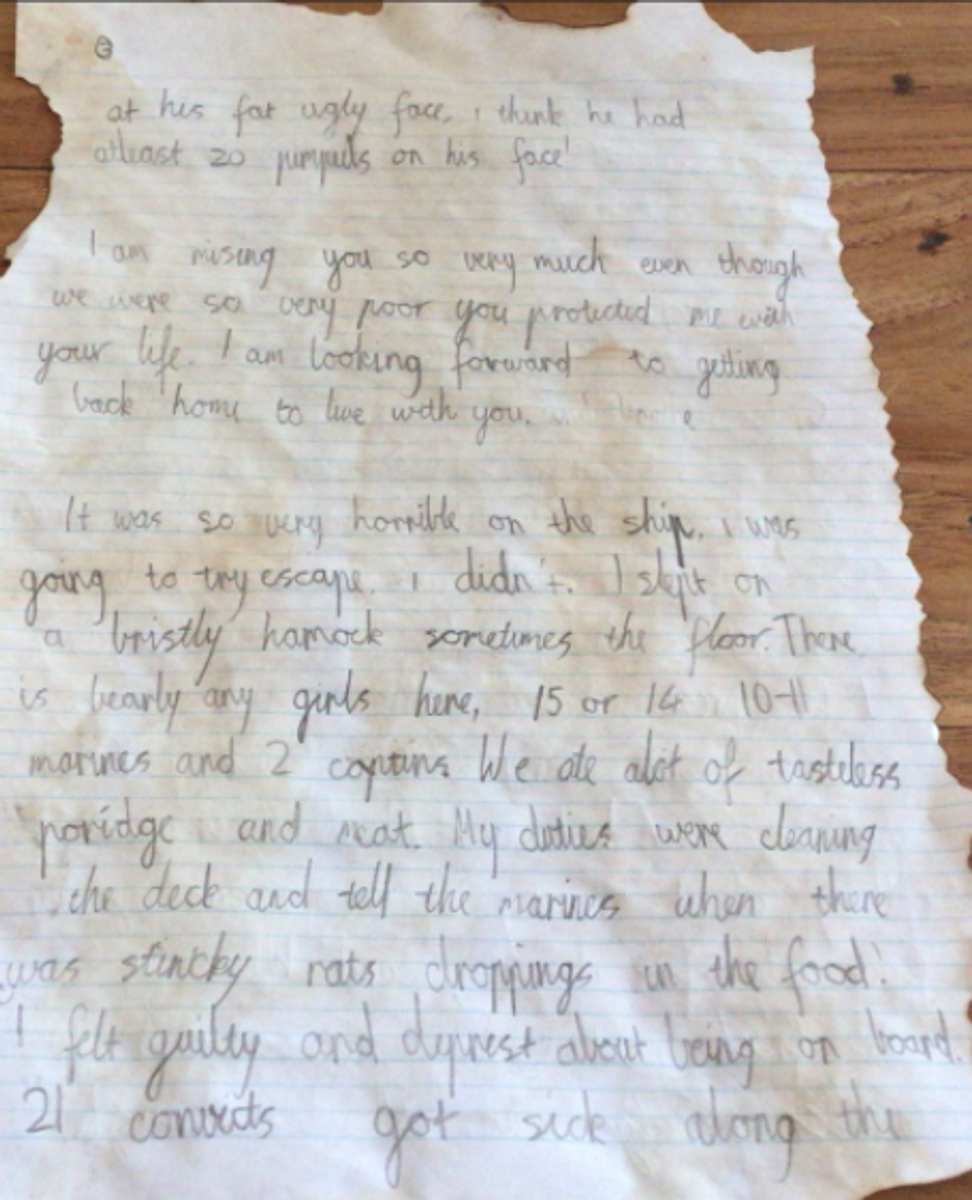 ②
at his fat ugly face, i think he had
atleast 20 pimpuls on his face!
I am mising you so very much even though
we were so very poor you protected me with
your life. I am looking forward to getting
back home to live with you.
It was so very horrible on the ship. i was
going to try escape. i didn't. I slept on
a bristly hamock sometimes the floor. There
is bearly any girls here, 15 or 14 10-11
marines and 2 captains. We ate alot of tasteless
poridge and meat. My duties were cleaning
the deck and tell the marines when there
was stincky rats droppings in the food!
I felt guilty and depresst about being on board.
21 convicts got sick along the